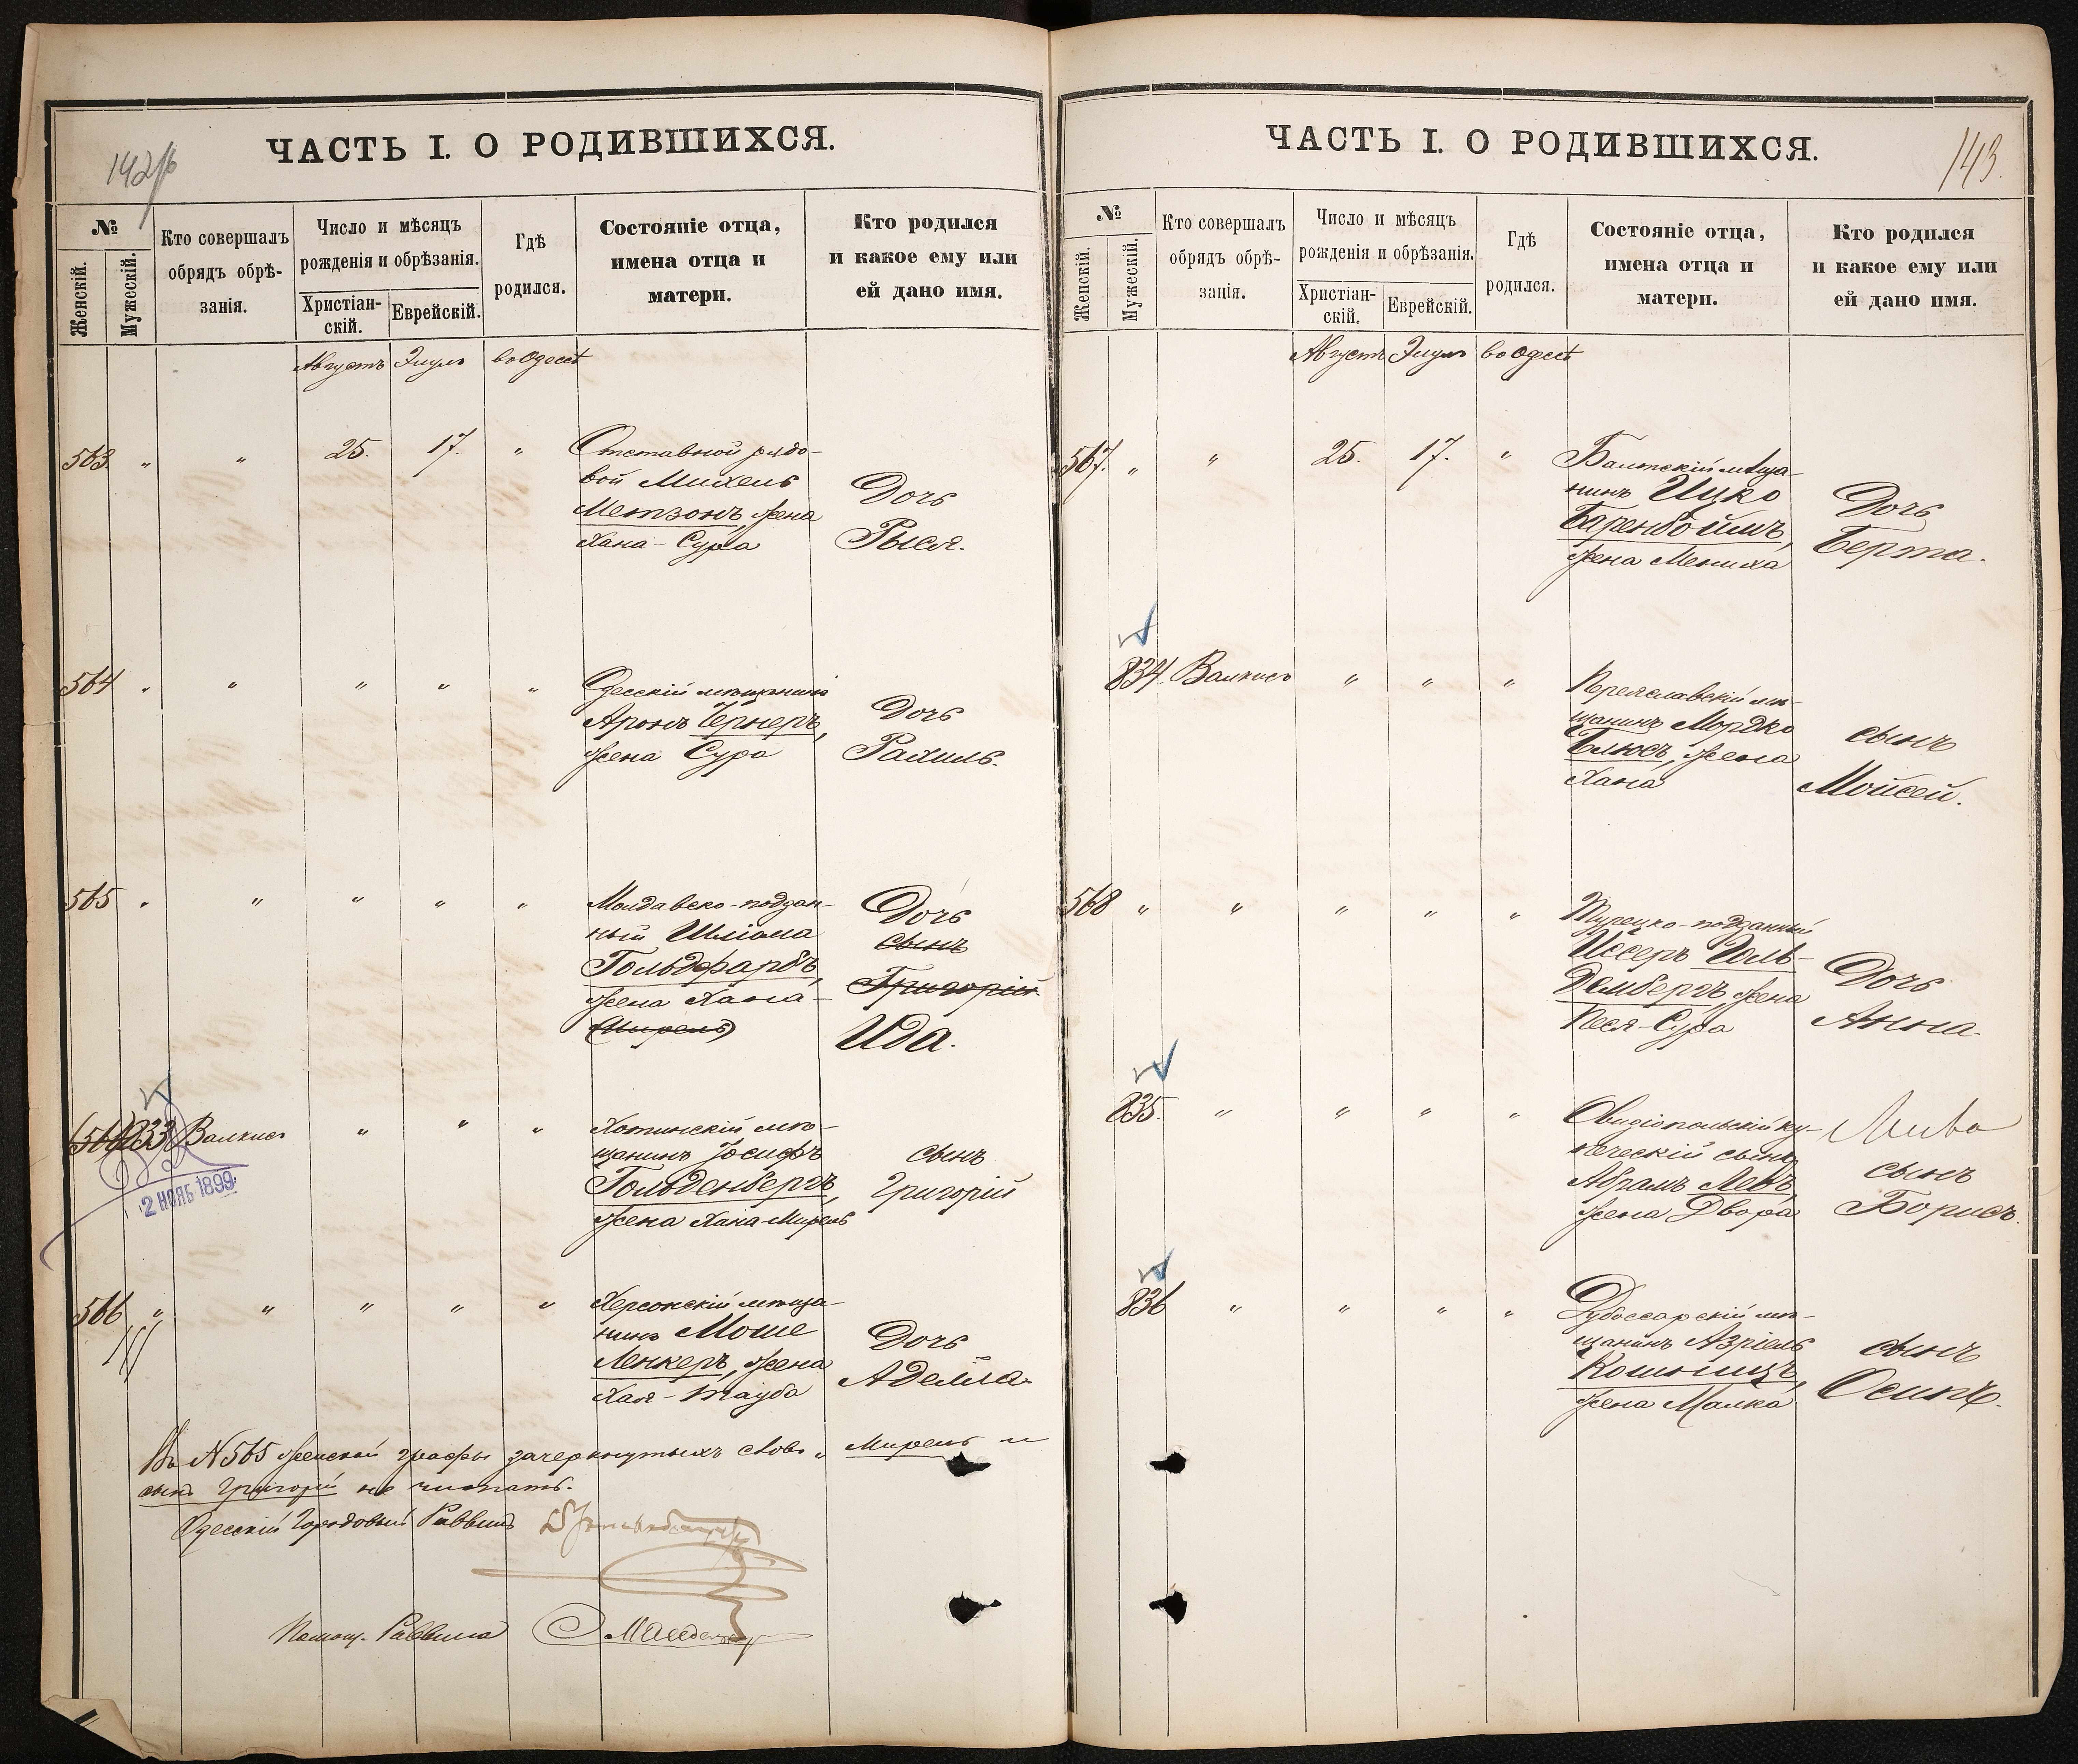 142об
ЧАСТЬ I. О РОДИВШИХСЯ.
№
Женскій.
Мужескій.
Кто совершалъ
обрядъ обрѣ-
занія.
Число и мѣсяцъ
рожденія и обрѣзанія.
Христіан-
скій.
Еврейскій.
Гдѣ
родился.
Состояніе отца,
имена отца и
матери.
Кто родился
и какое ему или
ей дано имя.
Августъ Элулъ въ Одессѣ
563. " " 25. 17. " Отставной рядо-
вой Михель
Метзонъ, жена
Хана-Сура
Дочь
Рыся.
564 " " " " " Одесскій мѣщанинъ
Аронъ Чернеръ,
жена Сура
Дочь
Рахиль.
565 " " " " " Молдавско-поддан-
ный Шліома
Гольдфарбъ,
жена Хана-
(Мирель)
Дочь
сынъ
Григорій
Ида.
(566) 833 Валкисъ " " " Хотинскій мѣ-
щанинъ Іосифъ
Гольденбергъ,
жена Хана-Мирель
сынъ
Григорій
2 НОЯБ 1899
566 " " " " " Херсонскій мѣща-
нинъ Моше
Ленкеръ, жена
Хая-Тауба
Дочь
Аделла.
Въ № 565 женской графы зачеркнутыхъ словъ " Мирель и
сынъ Григорій не читать.
Одесскій Городовый Раввинъ
Помощ. Раввина
143.
ЧАСТЬ I. О РОДИВШИХСЯ.
№
Женскій.
Мужескій.
Кто совершалъ
обрядъ обрѣ-
занія.
Число и мѣсяцъ
рожденія и обрѣзанія.
Христіан-
скій.
Еврейскій.
Гдѣ
родился.
Состояніе отца,
имена отца и
матери.
Кто родился
и какое ему или
ей дано имя.
Августъ Элулъ въ Одессѣ
567. " " 25. 17. " Балтскій мѣща-
нинъ Ицко
Беренбоймъ,
жена Мениха
Дочь
Берта.
834. Валкисъ " " " Переяславскій мѣ-
щанинъ Мордко
Блюсъ, жена
Хана
сынъ
Мойсей.
568 " " " " " Турецко-подданный
Иссеръ Голь-
дембергъ, жена
Песя-Сура
Дочь
Анна.
835. " " " " Овидіопольскій ку-
печескій сынъ
Абрамъ Левъ,
жена Двора
Лива
сынъ
Борисъ.
836 " " " " Дубоссарскій мѣ-
щанинъ Азріель
Кошницъ,
жена Малка
сынъ
Осипъ.